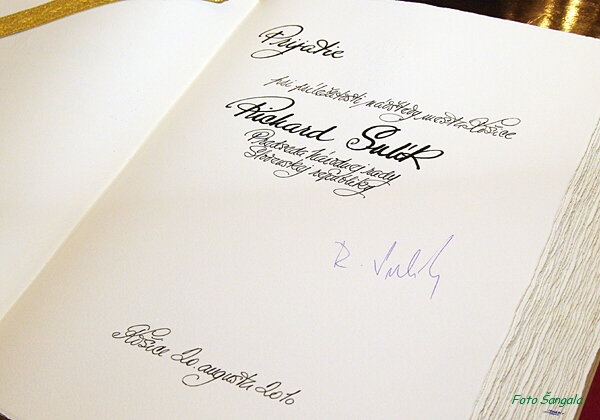 Prijatie
pri príležitosti návštevy mesta Košice
Richard Sulík
Predseda Národnej rady
Slovenskej republiky
R. Sulík
Košice 20. augusta 2010
Foto Šangala